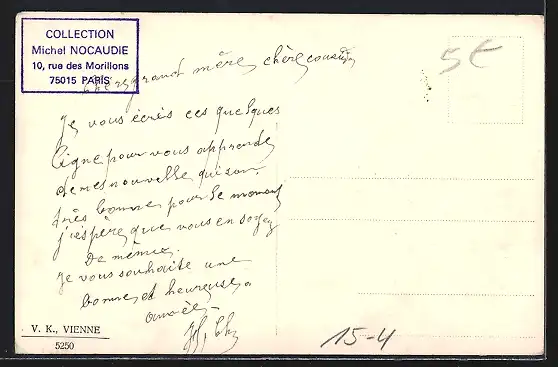 COLLECTION
Michel NOCAUDIE
10, rue des Morillons
75015 PARIS
5€
chère grand mère, chère cousine
Je vous écris ces quelques
ligne pour vous apprendre
de mes nouvelle qui son
très bonne pour le moment
j'espère que vous en soyez
de même.
Je vous souhaite une
bonne et heureuse
année
V. K., VIENNE
5250
15-4